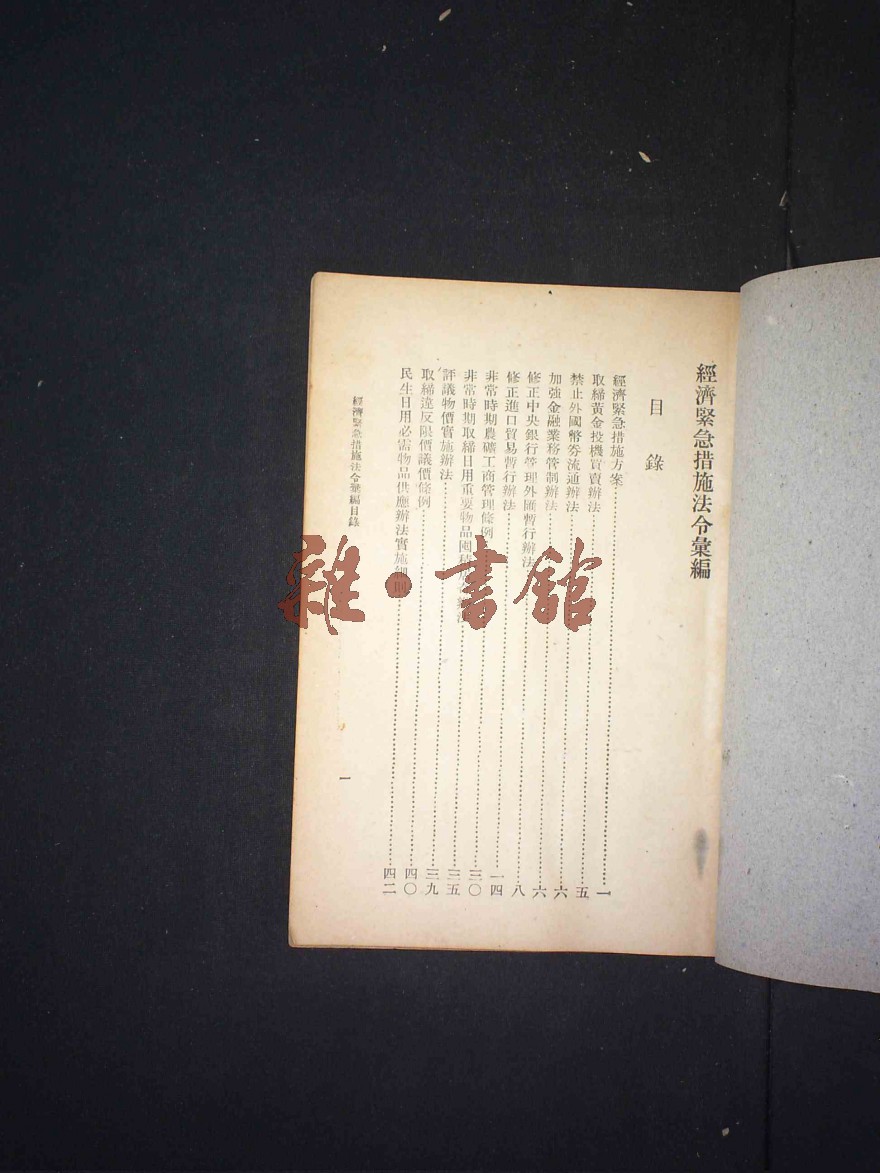 經濟緊急措施法令彙編
目錄
經濟緊急措施方案……一
取締黃金投機買賣辦法……五
禁止外國幣券流通辦法……六
加強金融業務管制辦法……六
修正中央銀行管理外匯暫行辦法……八
修正進口貿易暫行辦法……一四
非常時期農礦工商管理條例……三〇
非常時期取締日用重要物品囤積……三五
評議物價實施辦法……三九
取締違反限價議價條例……四〇
民生日用必需物品供應辦法實施細則……四二
經濟緊急措施法令彙編目錄
一
雜·書館